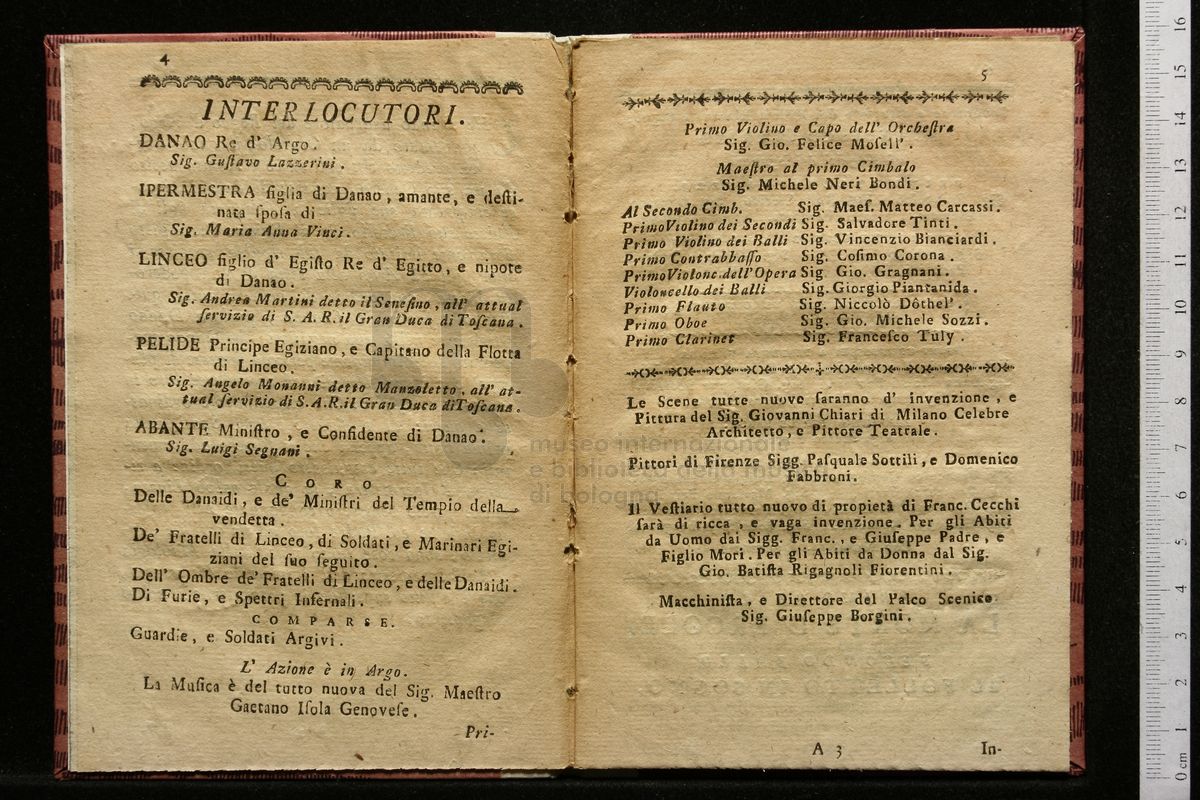 4
INTERLOCUTORI.
DANAO Re d' Argo.
Sig. Guſtavo Lazzerini.
IPERMESTRA figlia di Danao, amante, e deſti-
nata ſpoſa di
Sig. Maria Anna Vinci.
LINCEO figlio d' Egiſto Re d' Egitto, e nipote
di Danao.
Sig. Andrea Martini detto il Seneſino, all' attual
ſervizio di S. A. R. il Gran Duca di Toſcana.
PELIDE Principe Egiziano, e Capitano della Flotta
di Linceo.
Sig. Angelo Monanni detto Manzoletto, all' at-
tual ſervizio di S. A. R. il Gran Duca di Toſcana.
ABANTE Miniſtro, e Confidente di Danao.
Sig. Luigi Segnani.
CORO
Delle Danaidi, e de' Miniſtri del Tempio della
vendetta.
De' Fratelli di Linceo, di Soldati, e Marinari Egi-
ziani del ſuo ſeguito.
Dell' Ombre de' Fratelli di Linceo, e delle Danaidi.
Di Furie, e Spettri Infernali.
COMPARSE.
Guardie, e Soldati Argivi.
L' Azione è in Argo.
La Muſica è del tutto nuova del Sig. Maeſtro
Gaetano Iſola Genoveſe.
Pri-
5
Primo Violino e Capo dell' Orcheſtra
Sig. Gio. Felice Moſell'.
Maeſtro al primo Cimbalo
Sig. Michele Neri Bondi.
Al Secondo Cimb. Sig. Maeſ. Matteo Carcassi.
Primo Violino dei Secondi Sig. Salvadore Tinti.
Primo Violino dei Balli Sig. Vincenzio Bianciardi.
Primo Contrabbaſſo Sig. Coſimo Corona.
Primo Violonc. dell' Opera Sig. Gio. Gragnani.
Violoncello dei Balli Sig. Giorgio Piantanida.
Primo Flauto Sig. Niccolò Dôthel'.
Primo Oboe Sig. Gio. Michele Sozzi.
Primo Clarinet Sig. Franceſco Tuly.
Le Scene tutte nuove ſaranno d' invenzione, e
Pittura del Sig. Giovanni Chiari di Milano Celebre
Architetto, e Pittore Teatrale.
Pittori di Firenze Sigg. Paſquale Sottili, e Domenico
Fabbroni.
Il Veſtiario tutto nuovo di propietà di Franc. Cecchi
ſarà di ricca, e vaga invenzione. Per gli Abiti
da Uomo dai Sigg. Franc., e Giuſeppe Padre, e
Figlio Mori. Per gli Abiti da Donna dal Sig.
Gio. Batiſta Rigagnoli Fiorentini.
Macchiniſta, e Direttore del Palco Scenico
Sig. Giuſeppe Borgini.
A 3
In-
museo internazionale
e biblioteca della musica
di bologna
0 cm 1 2 3 4 5 6 7 8 9 10 11 12 13 14 15 16